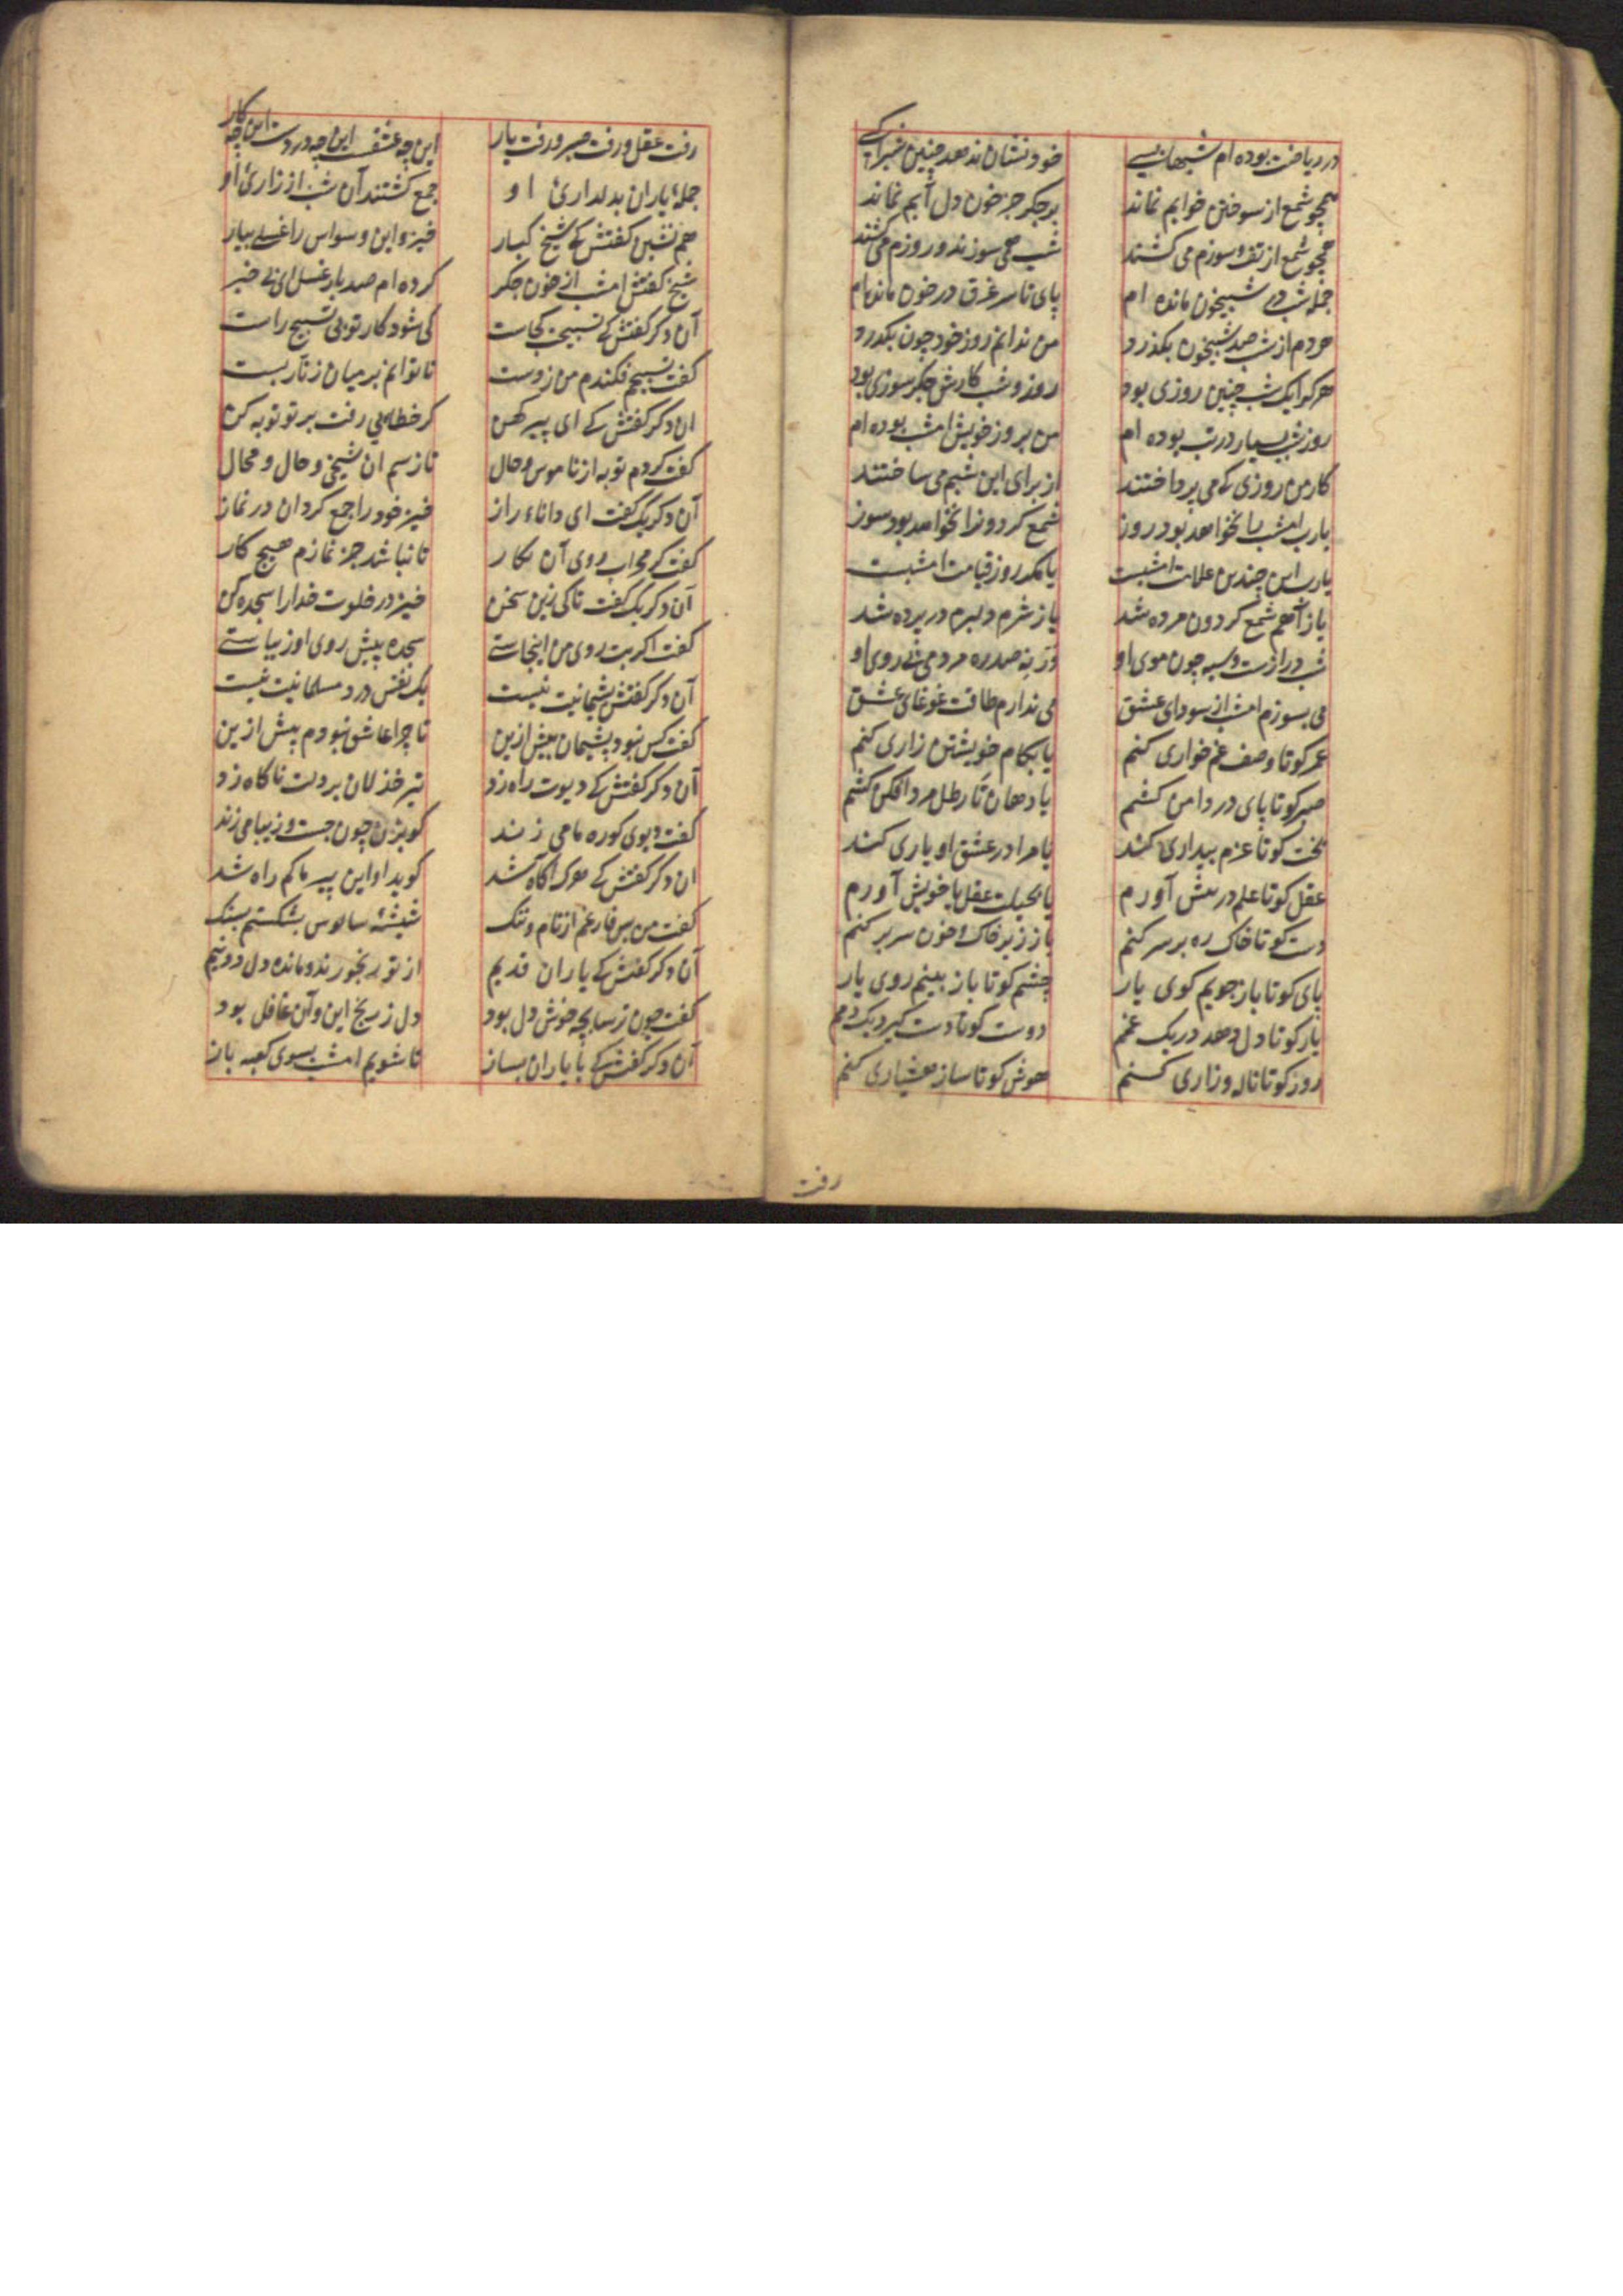 در ریاضت بوده ام شبهابسے خود نشان ندهد چنین شبرا کسے
همچو شمع از سوختن خوابم نماند بر جکر جز خون دل آبم نماند
همچو شمع از تف و سوزم می کشتند شب همی سوزند و روزم می کشند
جمله شب در شبیخون مانده ام پای تا سر غرق در خون مانده ام
هر دم از شب صد شبیخون بکذرد من ندانم روز خود چون بکذرد
هر کرا یک شب چنین روزی بود روز و شب کارش جکر سوزی بود
روز شب بسیار در تب بوده ام من بروز خویش امشب بوده ام
کار من روزی که می پرداختند از برای این شبم می ساختند
یارب امشب را نخواهد بود روز شمع کردون را نخواهد بود سوز
یارب این چندین علامت امشبست یا مکر روز قیامت امشبست
یا ز آهم شمع کردون مرده شد یا ز شرم دلبرم در پرده شد
شب درازست و سیه چون موی او ورنه صد ره مردمی بی روی او
می بسوزم امشب از سودای عشق می ندارم طاقت غوغای عشق
عمر کو تا وصف غم خواری کنم یا بکام خویشتن زاری کنم
صبر کو تا پای در دامن کشم یا دهان تا رطل مرد افکن کشم
بخت کو تا عزم بیداری کند یا مرا در عشق او یاری کند
عقل کو تا علم در پیش آورم یا بحیلت عقل با خویش آورم
دست کو تا خاک ره بر سر کنم یا ز زیر خاک و خون سر بر کنم
پای کو تا باز جویم کوی یار چشم کو تا باز بینم روی یار
یار کو تا دل دهد در یک غمم دوست کو تا دست کیرد یک دمم
روز کو تا ناله و زاری کنم هوش کو تا ساز هشیاری کنم
رفت
رفت عقل و رفت صبر و رفت یار این چه عشقست این چه دردست این چه کار
جملهٔ یاران بدلداریٔ او جمع کشتند آن شب از زاریٔ او
هم نشین کفتش کے شیخ کبار خیز و این وسواس را غسلے بیار
شیخ کفتش امشب از خون جکر کرده ام صد بار غسل ای بے خبر
آن دکر کفتش کے تسبیحت کجاست کی شود کار تو بی تسبیح راست
کفت تسبیحم فکندم من ز دست تا توانم بر میان زنار بست
ان دکر کفتش کے ای پیر کهن کر خطایی رفت بر تو توبه کن
کفت کردم توبه از ناموس و حال تا ز رسم ان شیخی و حال و محال
آن دکر یک کفت ای داناء راز خیز خود را جمع کردان در نماز
کفت کو محراب روی آن نکار تا نباشد جز نمازم هیچ کار
آن دکر یک کفت تا کی زین سخن خیز در خلوت خدا را سجده کن
کفت اکر بت روی من اینجاستے سجده پیش روی او زیباستے
آن دکر کفتش پشیمانیت نیست یک نفس درد مسلمانیت نیست
کفت کس نبود پشیمان بیش ازین تا چرا عاشق نبودم پیش ازین
آن دکر کفتش کے دیوت راه زد تیر خذلان بر دلت ناکاه زد
کفت دیوی کو ره ما می زند کو بزن چون چست و زیبا می زند
ان دکر کفتش کے هرک آکاه شد کوید او این پیر ما کم راه شد
کفت من بس فارغم از نام و ننک شیشهٔ سالوس بشکستم بسنک
آن دکر کفتش کے یاران قدیم از تو رنجورند و مانده دل دو نیم
کفت چون ترسا بچه خوش دل بود دل ز رنج این و آن غافل بود
آن دکر کفتش کے با یاران بساز تا شویم امشب بسوی کعبه باز